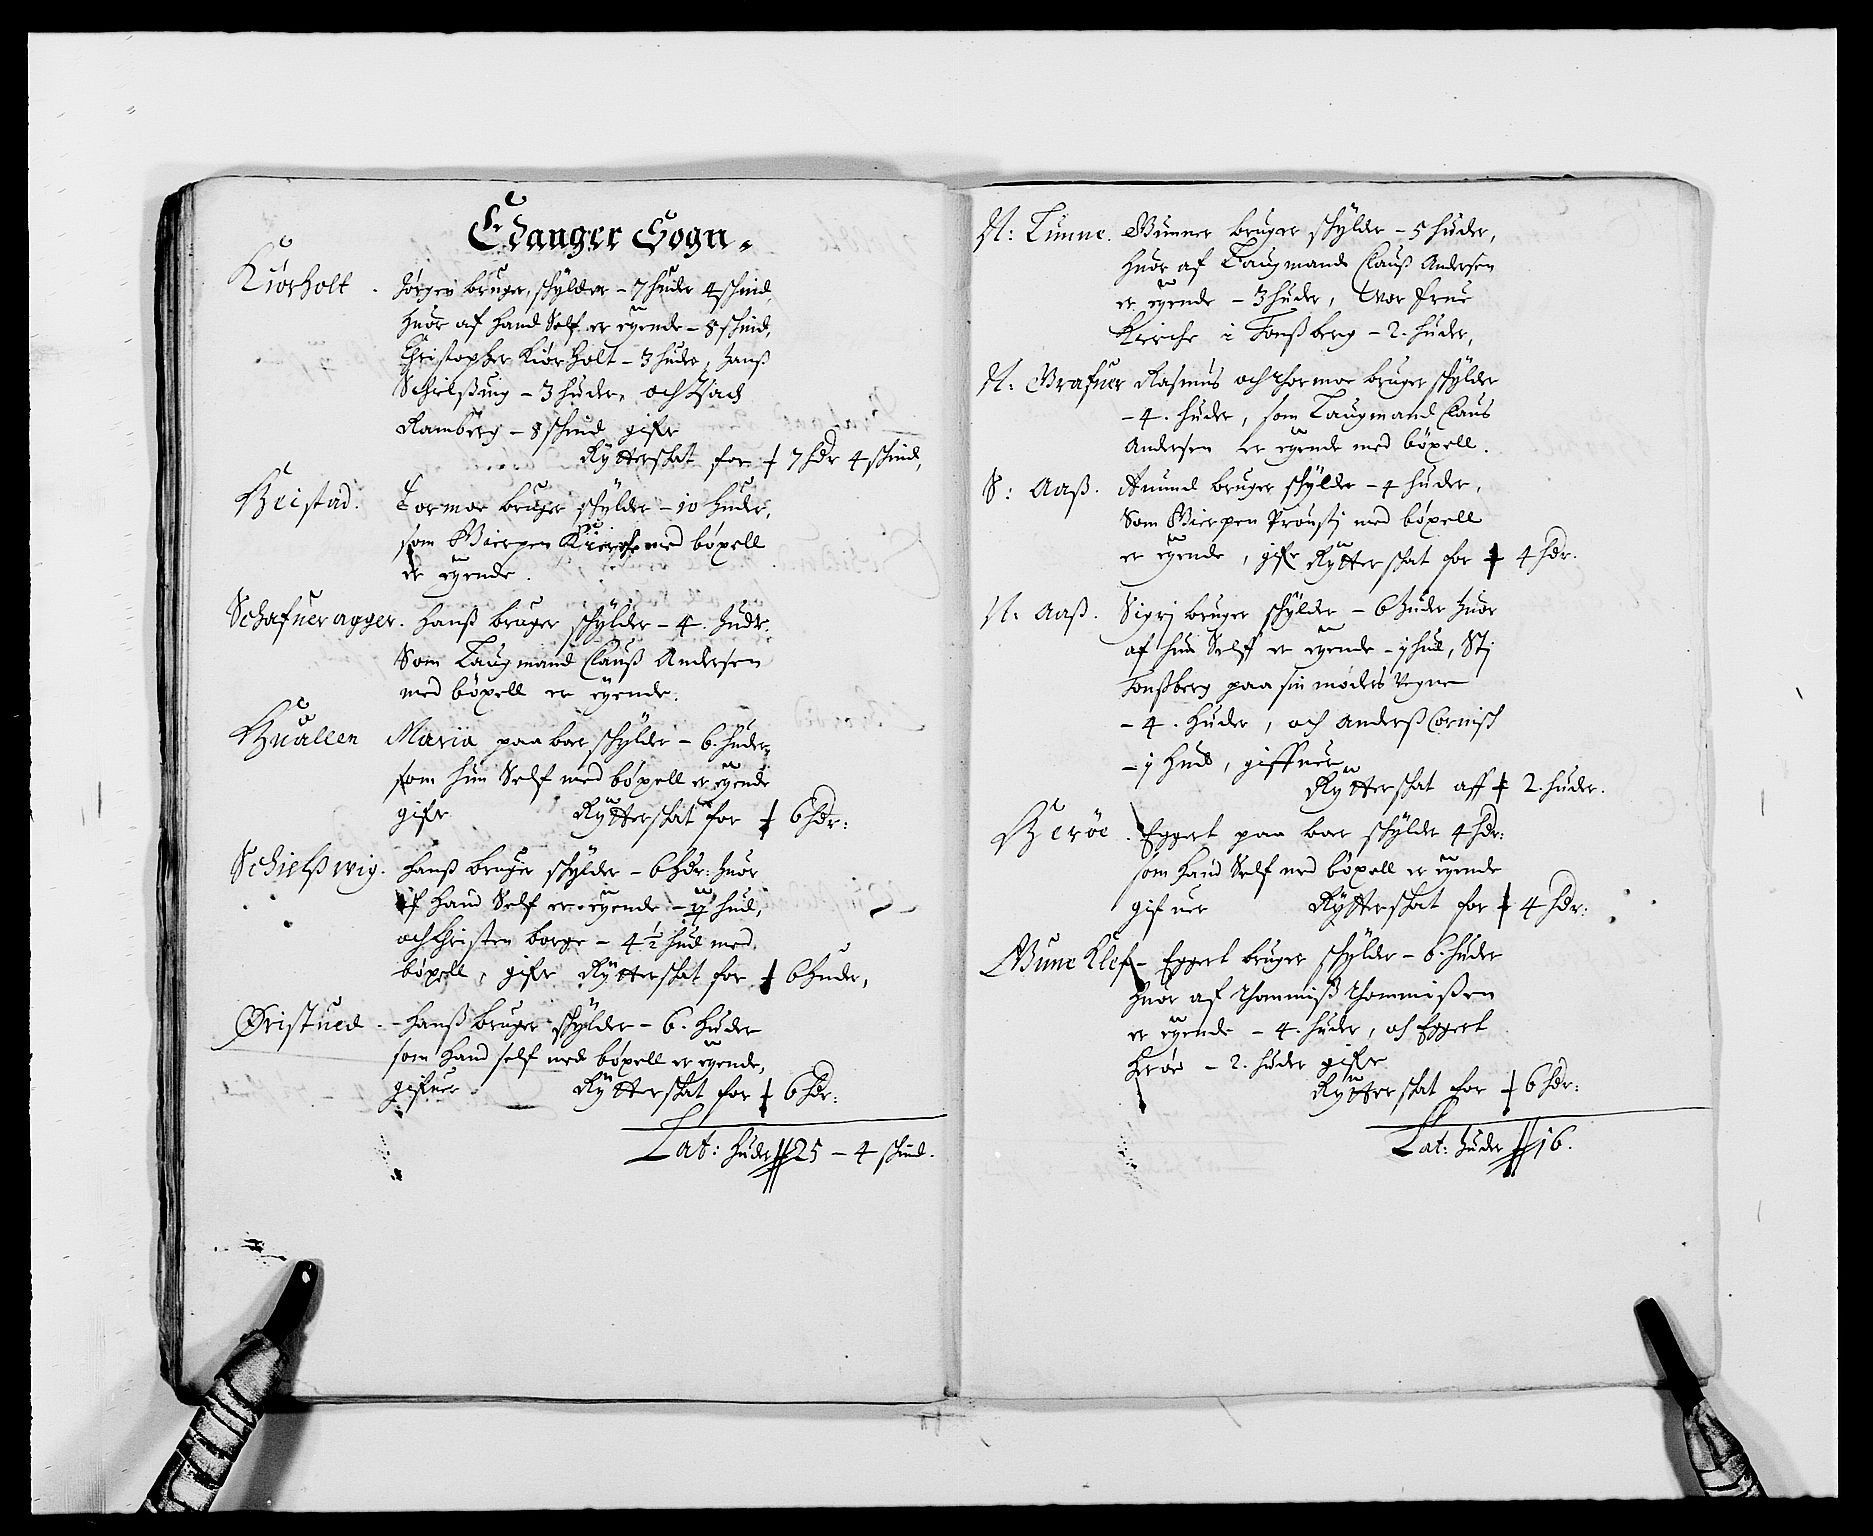 Edanger Sogn
Kiørholt . Jørgen bruger, schylder – 7 huder 4 schind,
huor af hand Self er eÿende – 8 schind,
Christopher Kiørholt – 3 huder, hanß
Schielßuig – 3 huder, och Isach
Ramberg – 8 schind gifr
Rÿtterschat for ⸗ 7 hdr 4 schind,
Heistad. Tormoe bruger schylder – 10 huder,
som Gierpen Kierche med böxell
er eÿende.
Schafueragger. hanß bruger schylder – 4. hudr.
Som Laugmand Clauß Andersen
med böxell er eÿende.
Huallen Maria paa boe schylder – 6. huder,
som hun Self med böxell er eÿende
gifr Rÿtterschat for ⸗ 6 hdr:
Schielßwig. hanß bruger schylder – 6 hdr: huor
af hand Self er eÿende – hud,
och Christen borge – 4½ hud med
böxell, gifr Rÿtterschat for ⸗ 6 huder,
Ørstued. – hanß bruger schylder – 6. huder
som hand self med böxell er eÿende,
gifuer Rÿtterschat for ⸗ 6 hdr:
Lat: huder 25 – 4 schind.
N: Tunne. Gunner bruger schylder – 5 huder,
huor af Laugmand Clauß Andersen
er eÿende – 3 huder, Wor frue
Kirche i Tonßberg – 2. huder,
N: Grafuer Rasmus och Thormoe bruger schylder
– 4. huder, som Laugmand Claus
Andersen er eÿende med böxell.
S: Aaß. Amund bruger schylder – 4 huder,
Som Gierpen Proustj med böxell
er eÿende, gifr Rÿtterschat for ⸗ 4 hdr.
N: Aaß. Sigrj bruger schylder – 6 huder huor
af hun Self er eÿende – 1 hud, Stj
Tonßberg paa sin moders Vegne
– 4. huder, och Anders Cornisch
– 1 hud, giffuer
Rÿtterschat aff ⸗ 2. huder.
Herøe . Eggert paa boe schylder 4 hdr:
som hand Self med böxell er eÿende
gifuer Rÿtterschat for ⸗ 4 hdr:
Guneklef – Eggert bruger schylder – 6. huder
huor af Thommiß Thommißen
er eÿende – 4. huder, och Eggert
herøe – 2. huder gifr
Rÿtterschat for ⸗ 6 hdr:
Lat: huder 16.